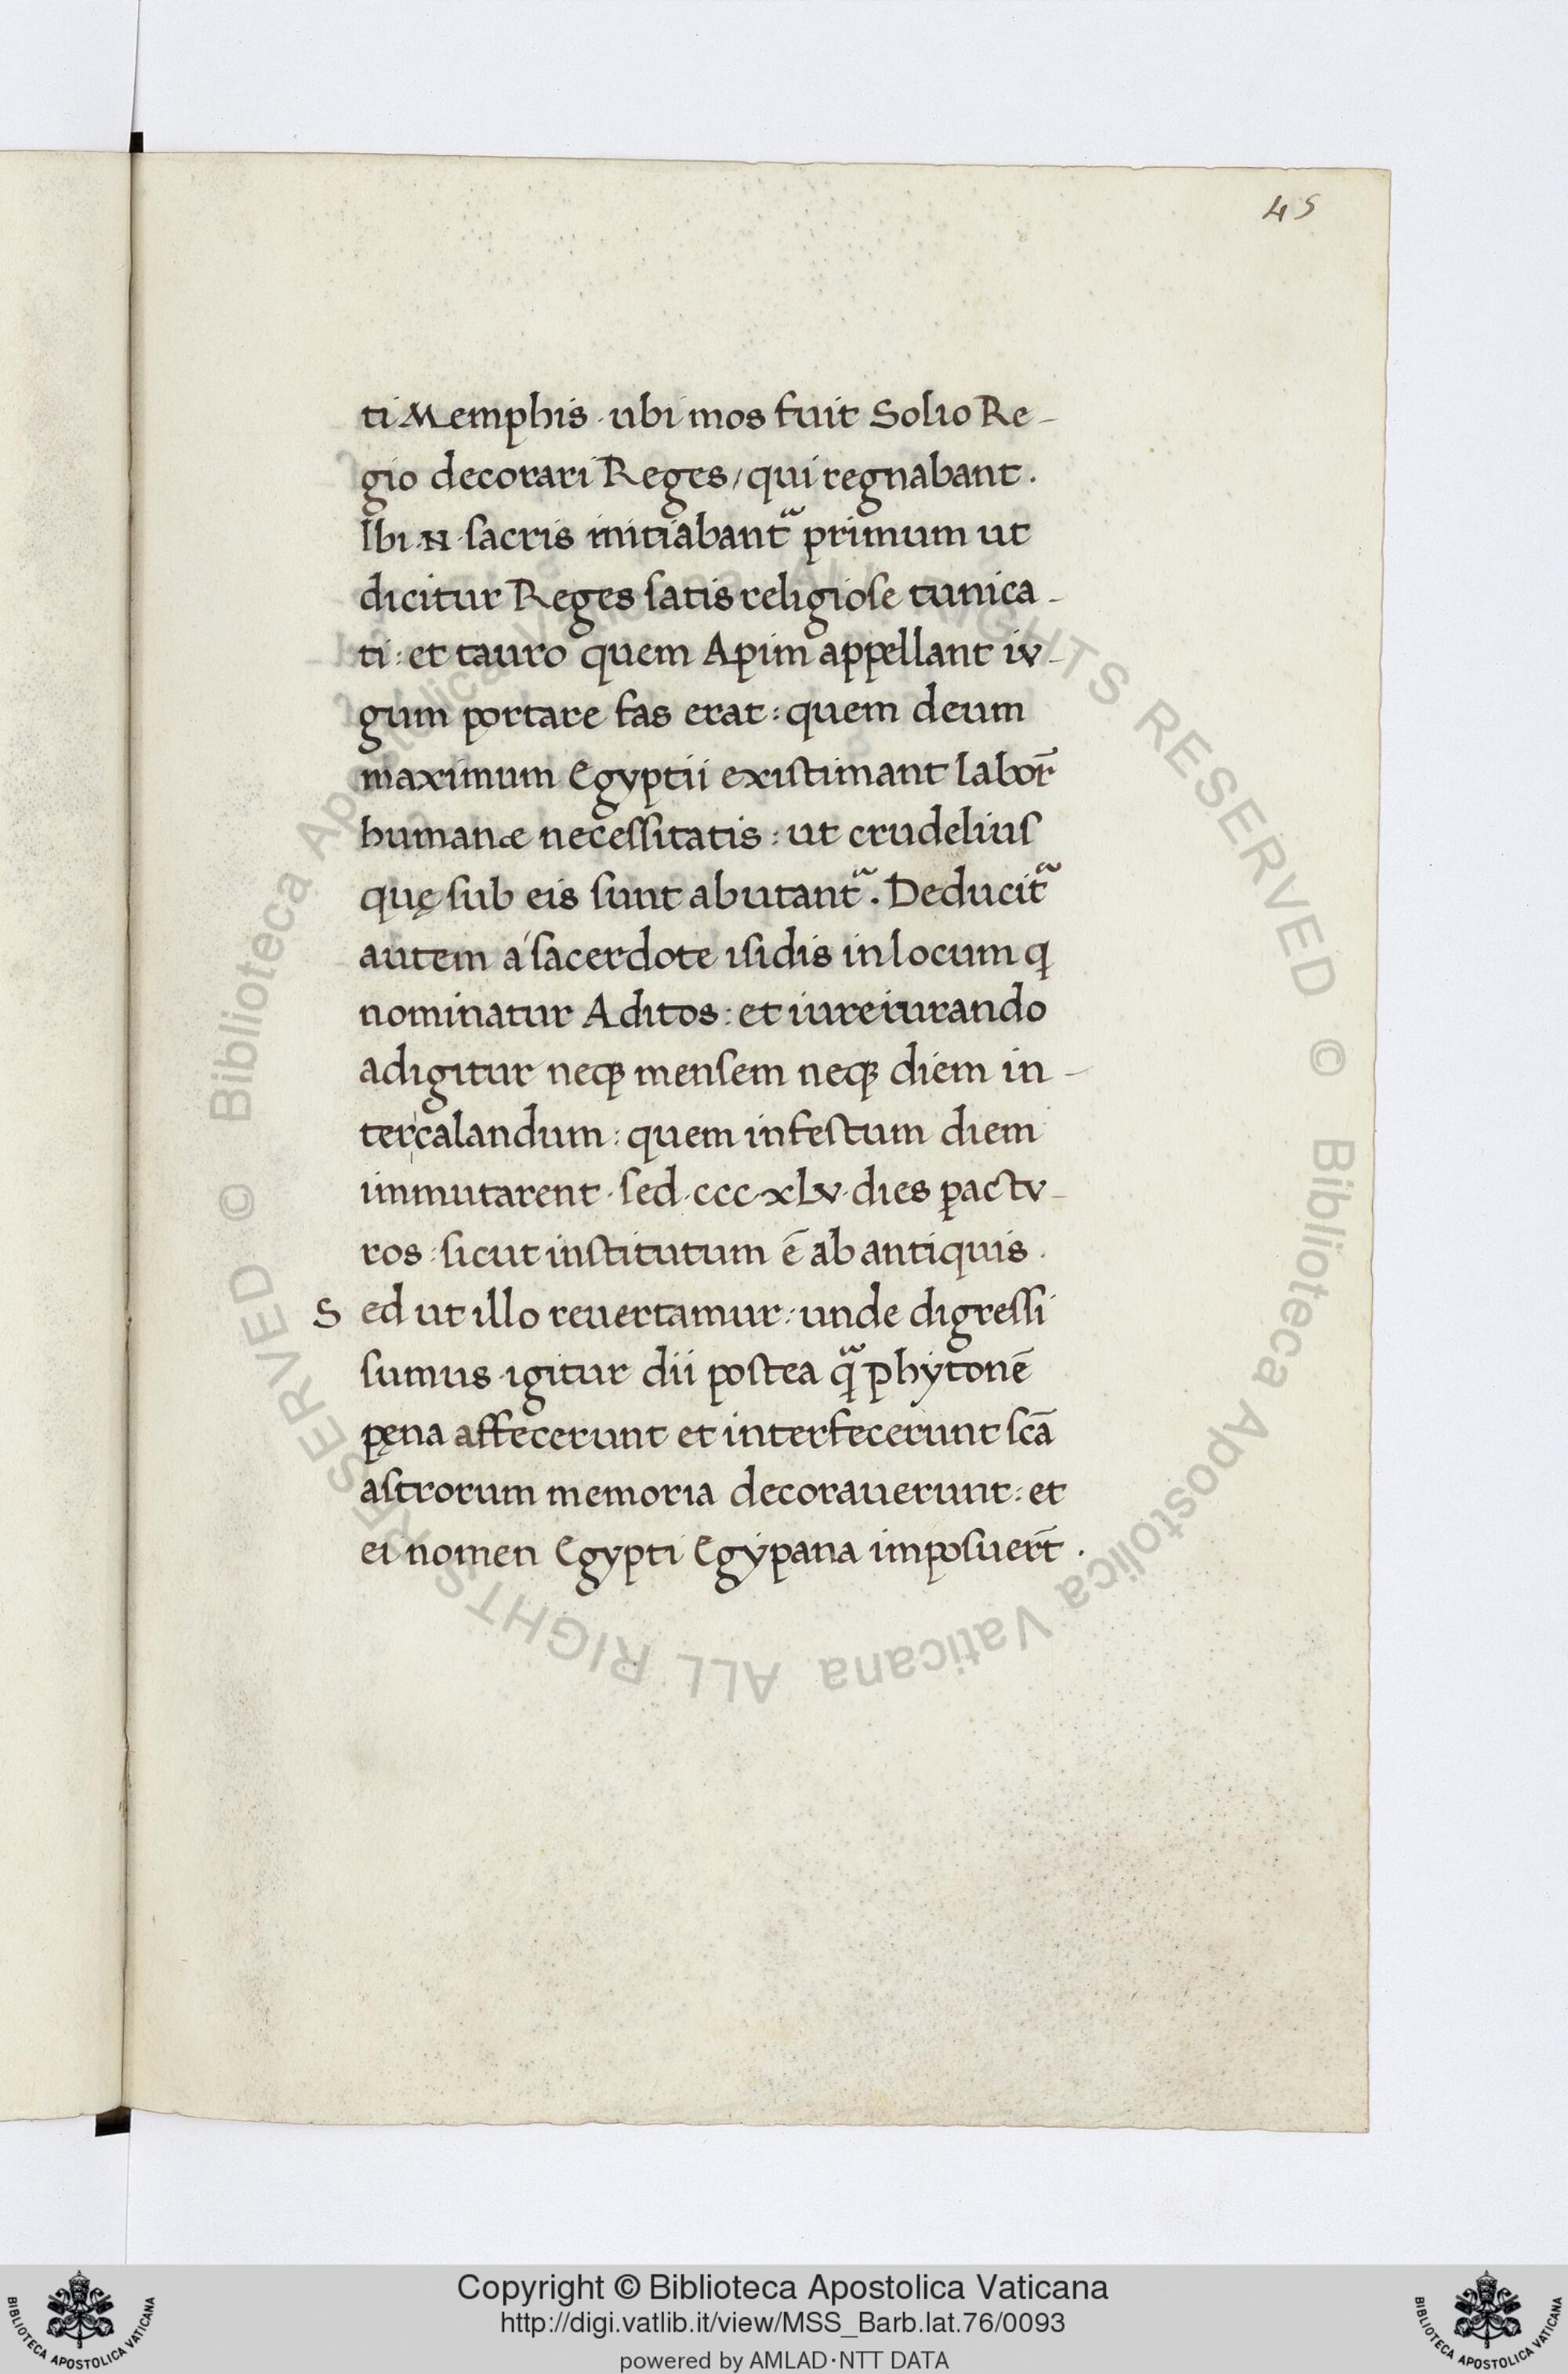 45
ti Memphis · ubi mos fuit Solio Re-
gio decorari Reges / qui regnabant .
Ibi · N · sacris initiabantᷓ primum ut
dicitur Reges satis religiose tunica-
ti : et tauro quem Apim appellant iv-
gum portare fas erat : quem deum
maximum Egyptii existimant labor̄
humanæ necessitatis : ut crudelius
quę sub eis sunt abutantᷓ . Deducitᷓ
autem a´ sacerdote isidis in locum ꝙ
nominatur Aditos : et iureiurando
adigitur neqꝫ mensem neqꝫ diem in-
tercalandum : quem in festum diem
immutarent · sed · ccc · xLv · dies ꝑactv-
ros : sicut institutum ē ab antiquis .
Sed ut illo reuertamur : unde digressi
sumus · igitur dii postea qᷓ phytonē
pęna affecerunt et interfecerunt scā
astrorum memoria decorauerunt : et
ei nomen Egypti Egypana imposuert̄ .
© Biblioteca Apostolica Vaticana ALL RIGHTS RESERVED © Biblioteca Apostolica Vaticana ALL RIGHTS RESERVED
Copyright © Biblioteca Apostolica Vaticana
http://digi.vatlib.it/view/MSS_Barb.lat.76/0093
powered by AMLAD·NTT DATA
BIBLIOTECA APOSTOLICA VATICANA
BIBLIOTECA APOSTOLICA VATICANA